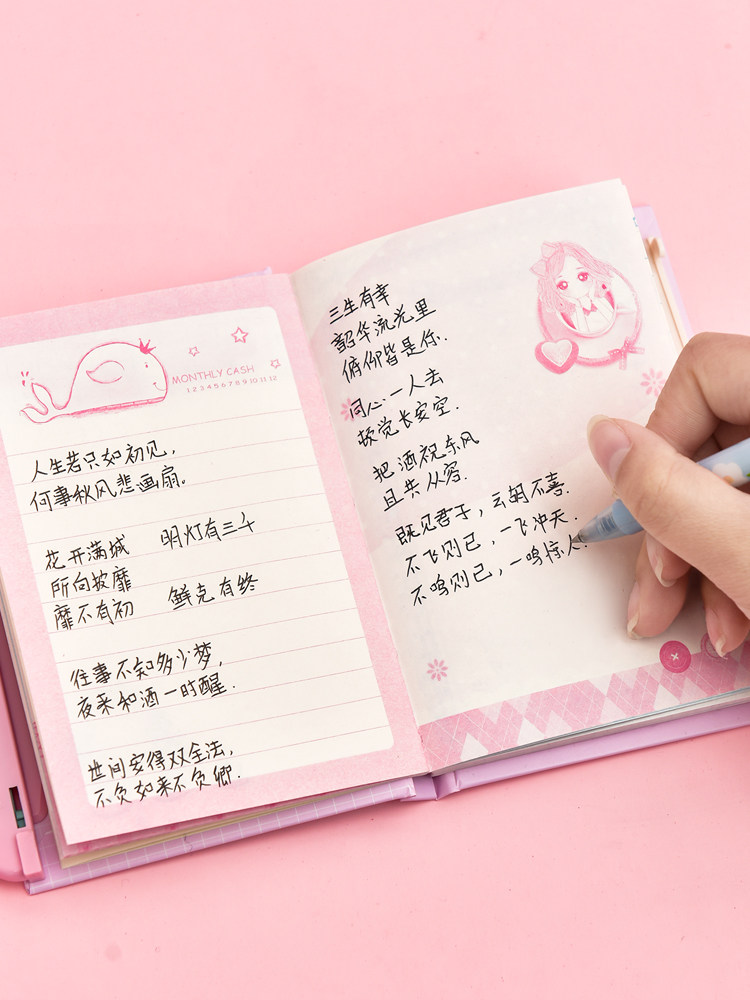 MONTHLY CASH
1 2 3 4 5 6 7 8 9 10 11 12
人生若只如初见,
何事秋风悲画扇。
花开满城 明灯有三千
所向披靡
靡不有初 鲜克有终
往事不知多少梦,
夜来和酒一时醒.
世间安得双全法,
不负如来不负卿.
三生有幸
韶华流光里
俯仰皆是你.
同心一人去
顿觉长安空.
把酒祝东风
且共从容.
既见君子,云胡不喜.
不飞则已,一飞冲天.
不鸣则已,一鸣惊人.